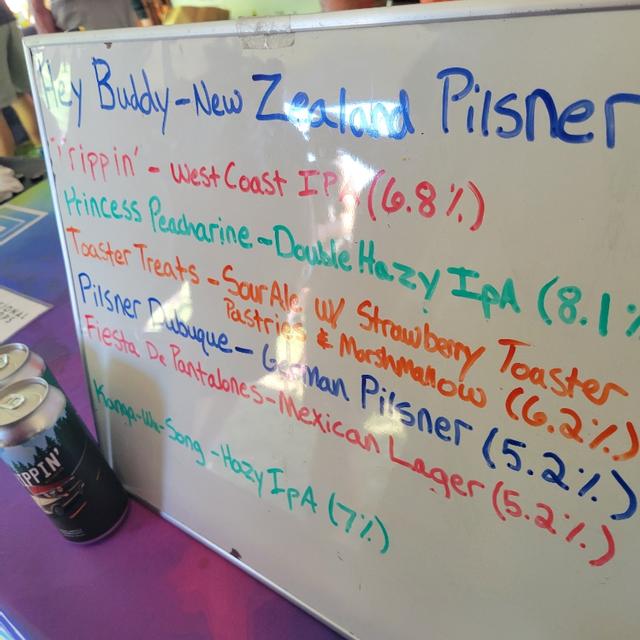 Hey Buddy - New Zealand Pilsner
Trippin' - West Coast IPA (6.8%)
Princess Peacharine - Double Hazy IPA (8.1%
Toaster Treats - Sour Ale w/ Strawberry Toaster
Pastries & Marshmallow (6.2%)
Pilsner Dubuque - German Pilsner (5.2%)
Fiesta De Pantalones - Mexican Lager (5.2%)
Kama-Wa-Song - Hazy IPA (7%)
IPPIN'